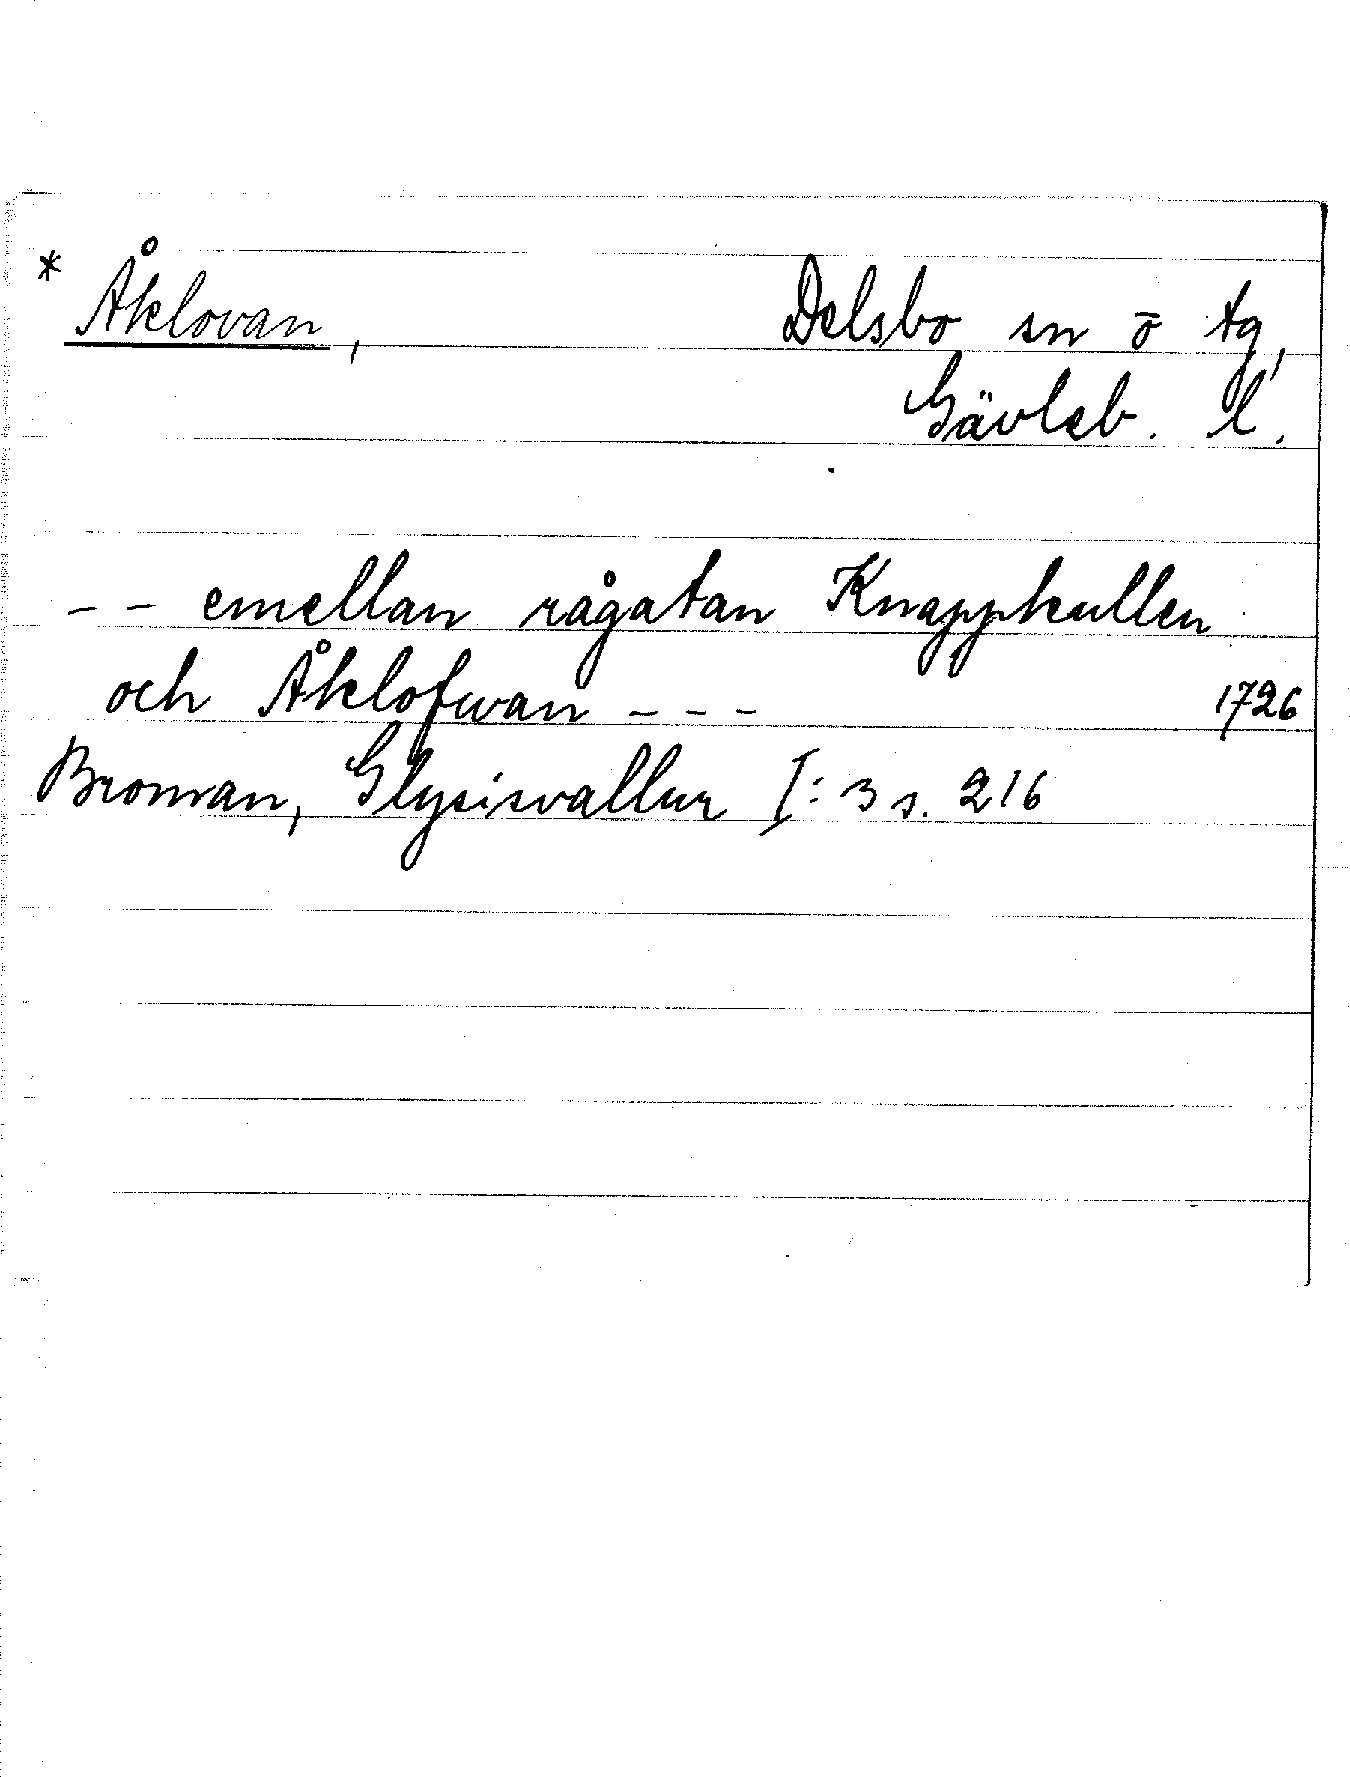 * Åklovan, Delsbo sn o tg,
Gävleb. l.
-- emellan rågatan Knappkullen
och Åklofwan --- 1726
Broman, Glysisvallur I:3 s. 216